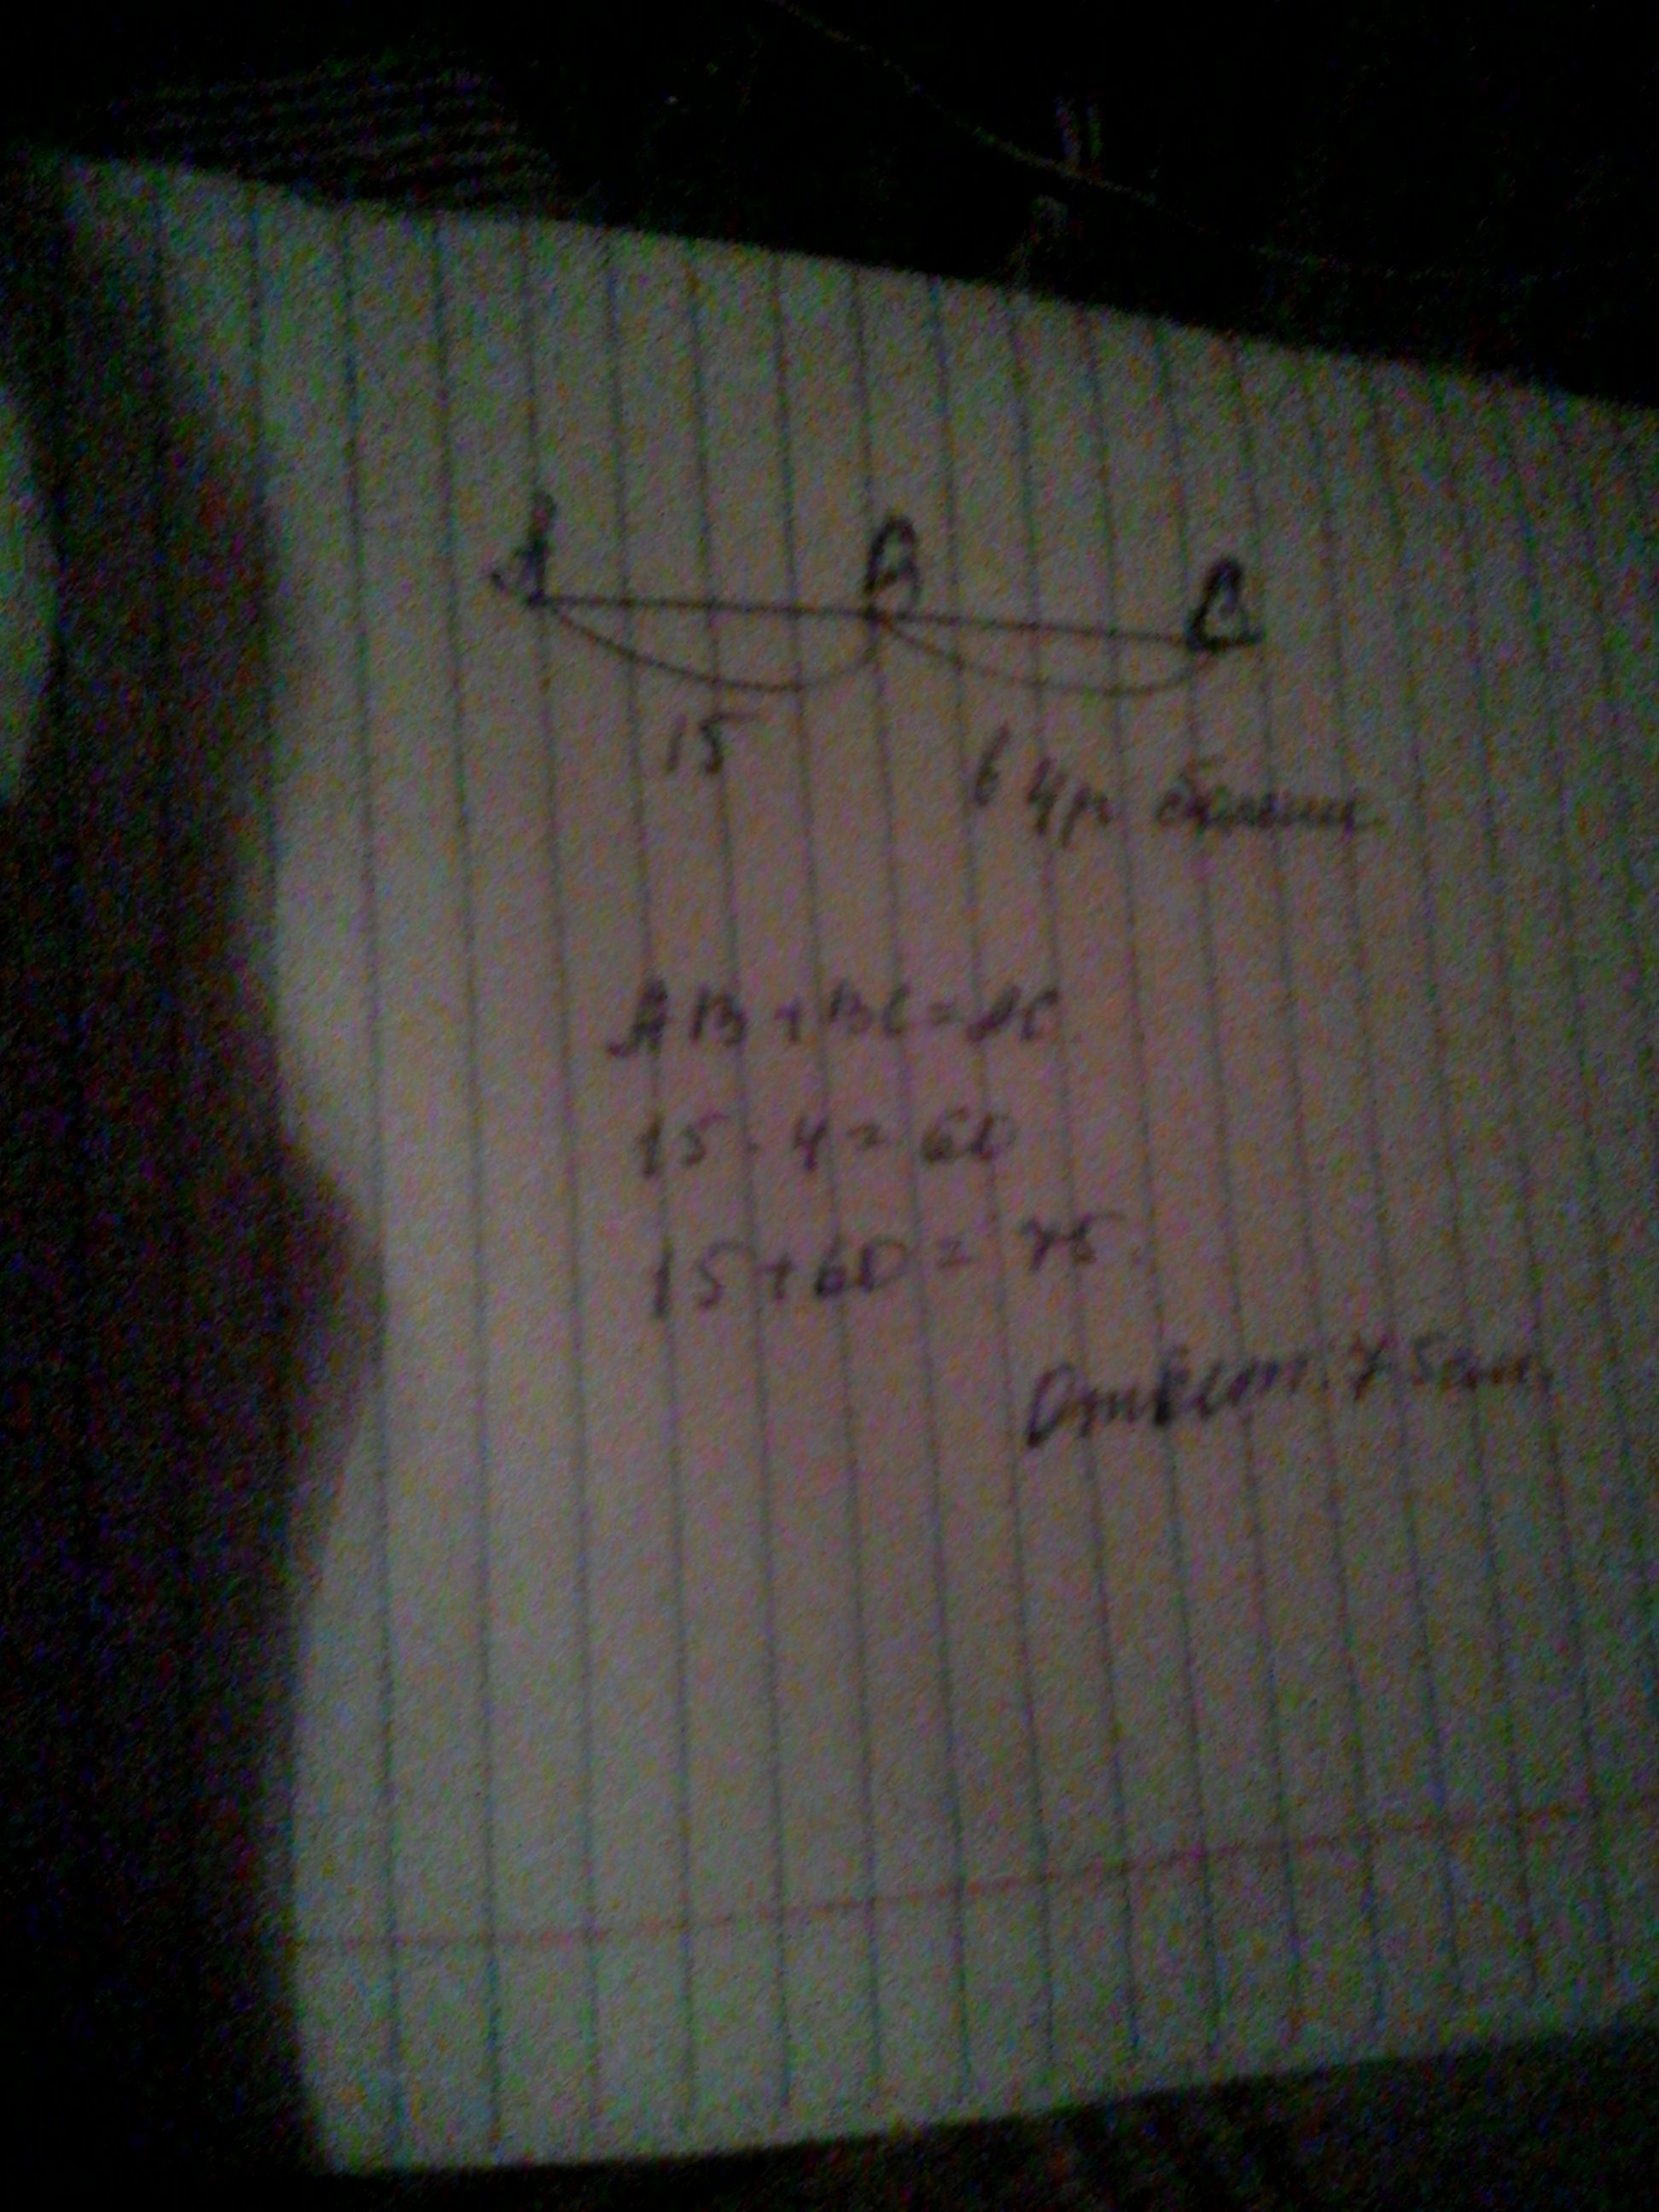 A B C
15 в 4 р. больше
AB + BC = AC
15 · 4 = 60
15 + 60 = 75.
Ответ: 75 см.